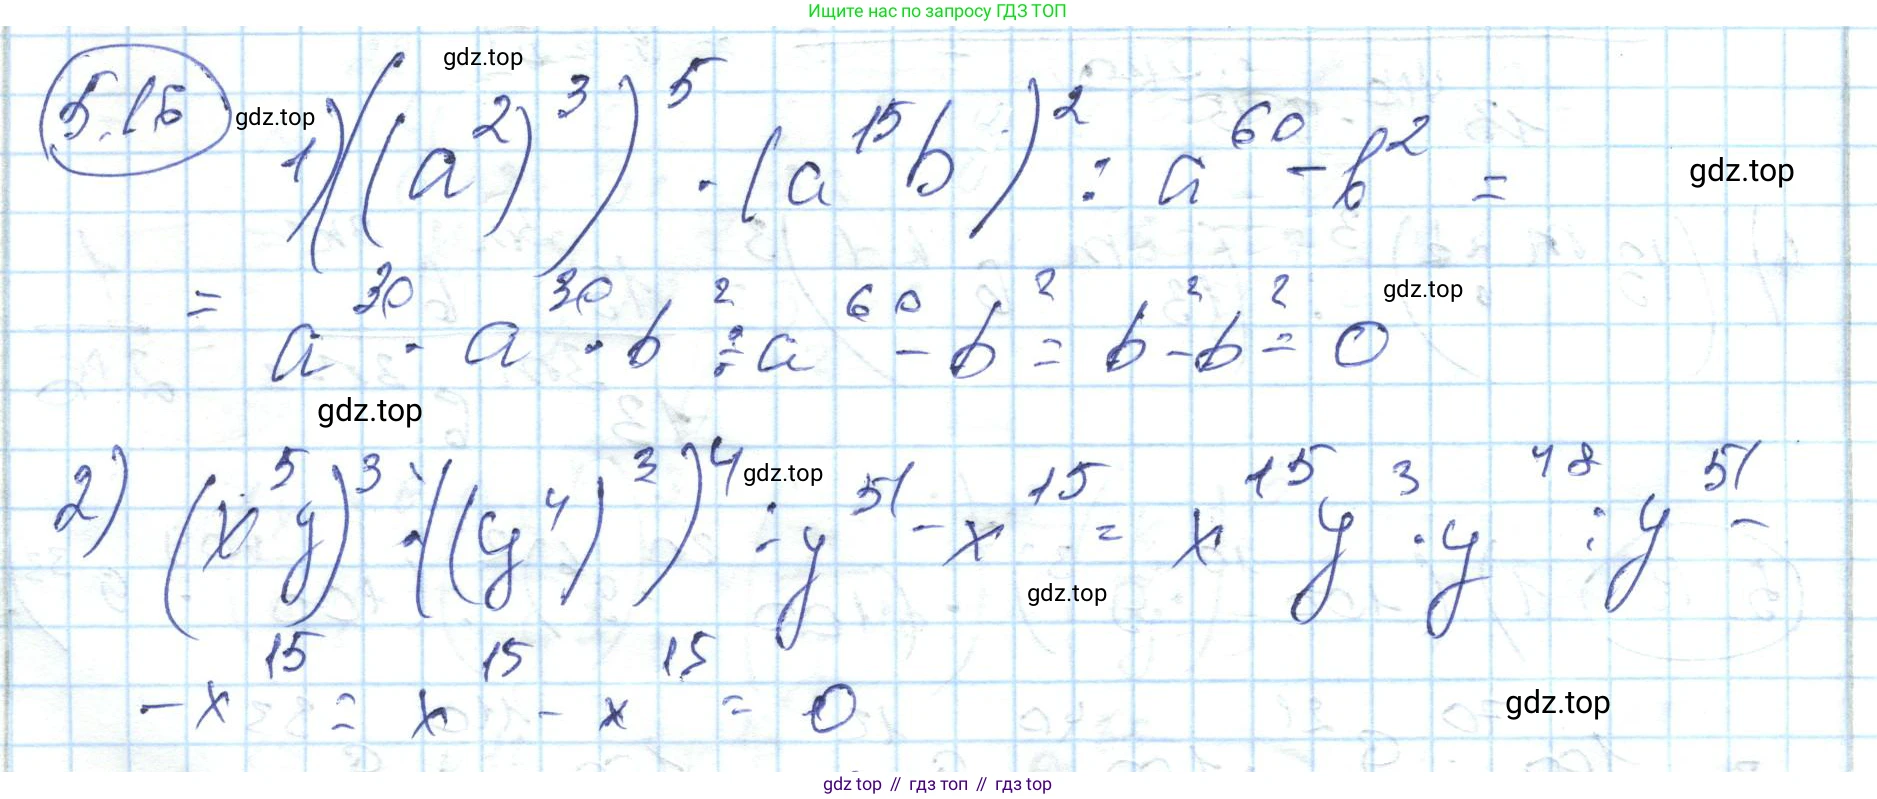 Ищите нас по запросу ГДЗ ТОП
gdz.top
5.15 gdz.top
1) ((a²)³)⁵ · (a¹⁵b)² : a⁶⁰ - b² =
gdz.top
= a³⁰ · a³⁰ · b² : a⁶⁰ - b² = b² - b² = 0
gdz.top
gdz.top
2) (x⁵y)³ · ((y⁴)³)⁴ : y⁵¹ - x¹⁵ = x¹⁵y³ · y⁴⁸ : y⁵¹ -
gdz.top
gdz.top
- x¹⁵ = x¹⁵ - x¹⁵ = 0
gdz.top
gdz top // гдз топ // gdz top